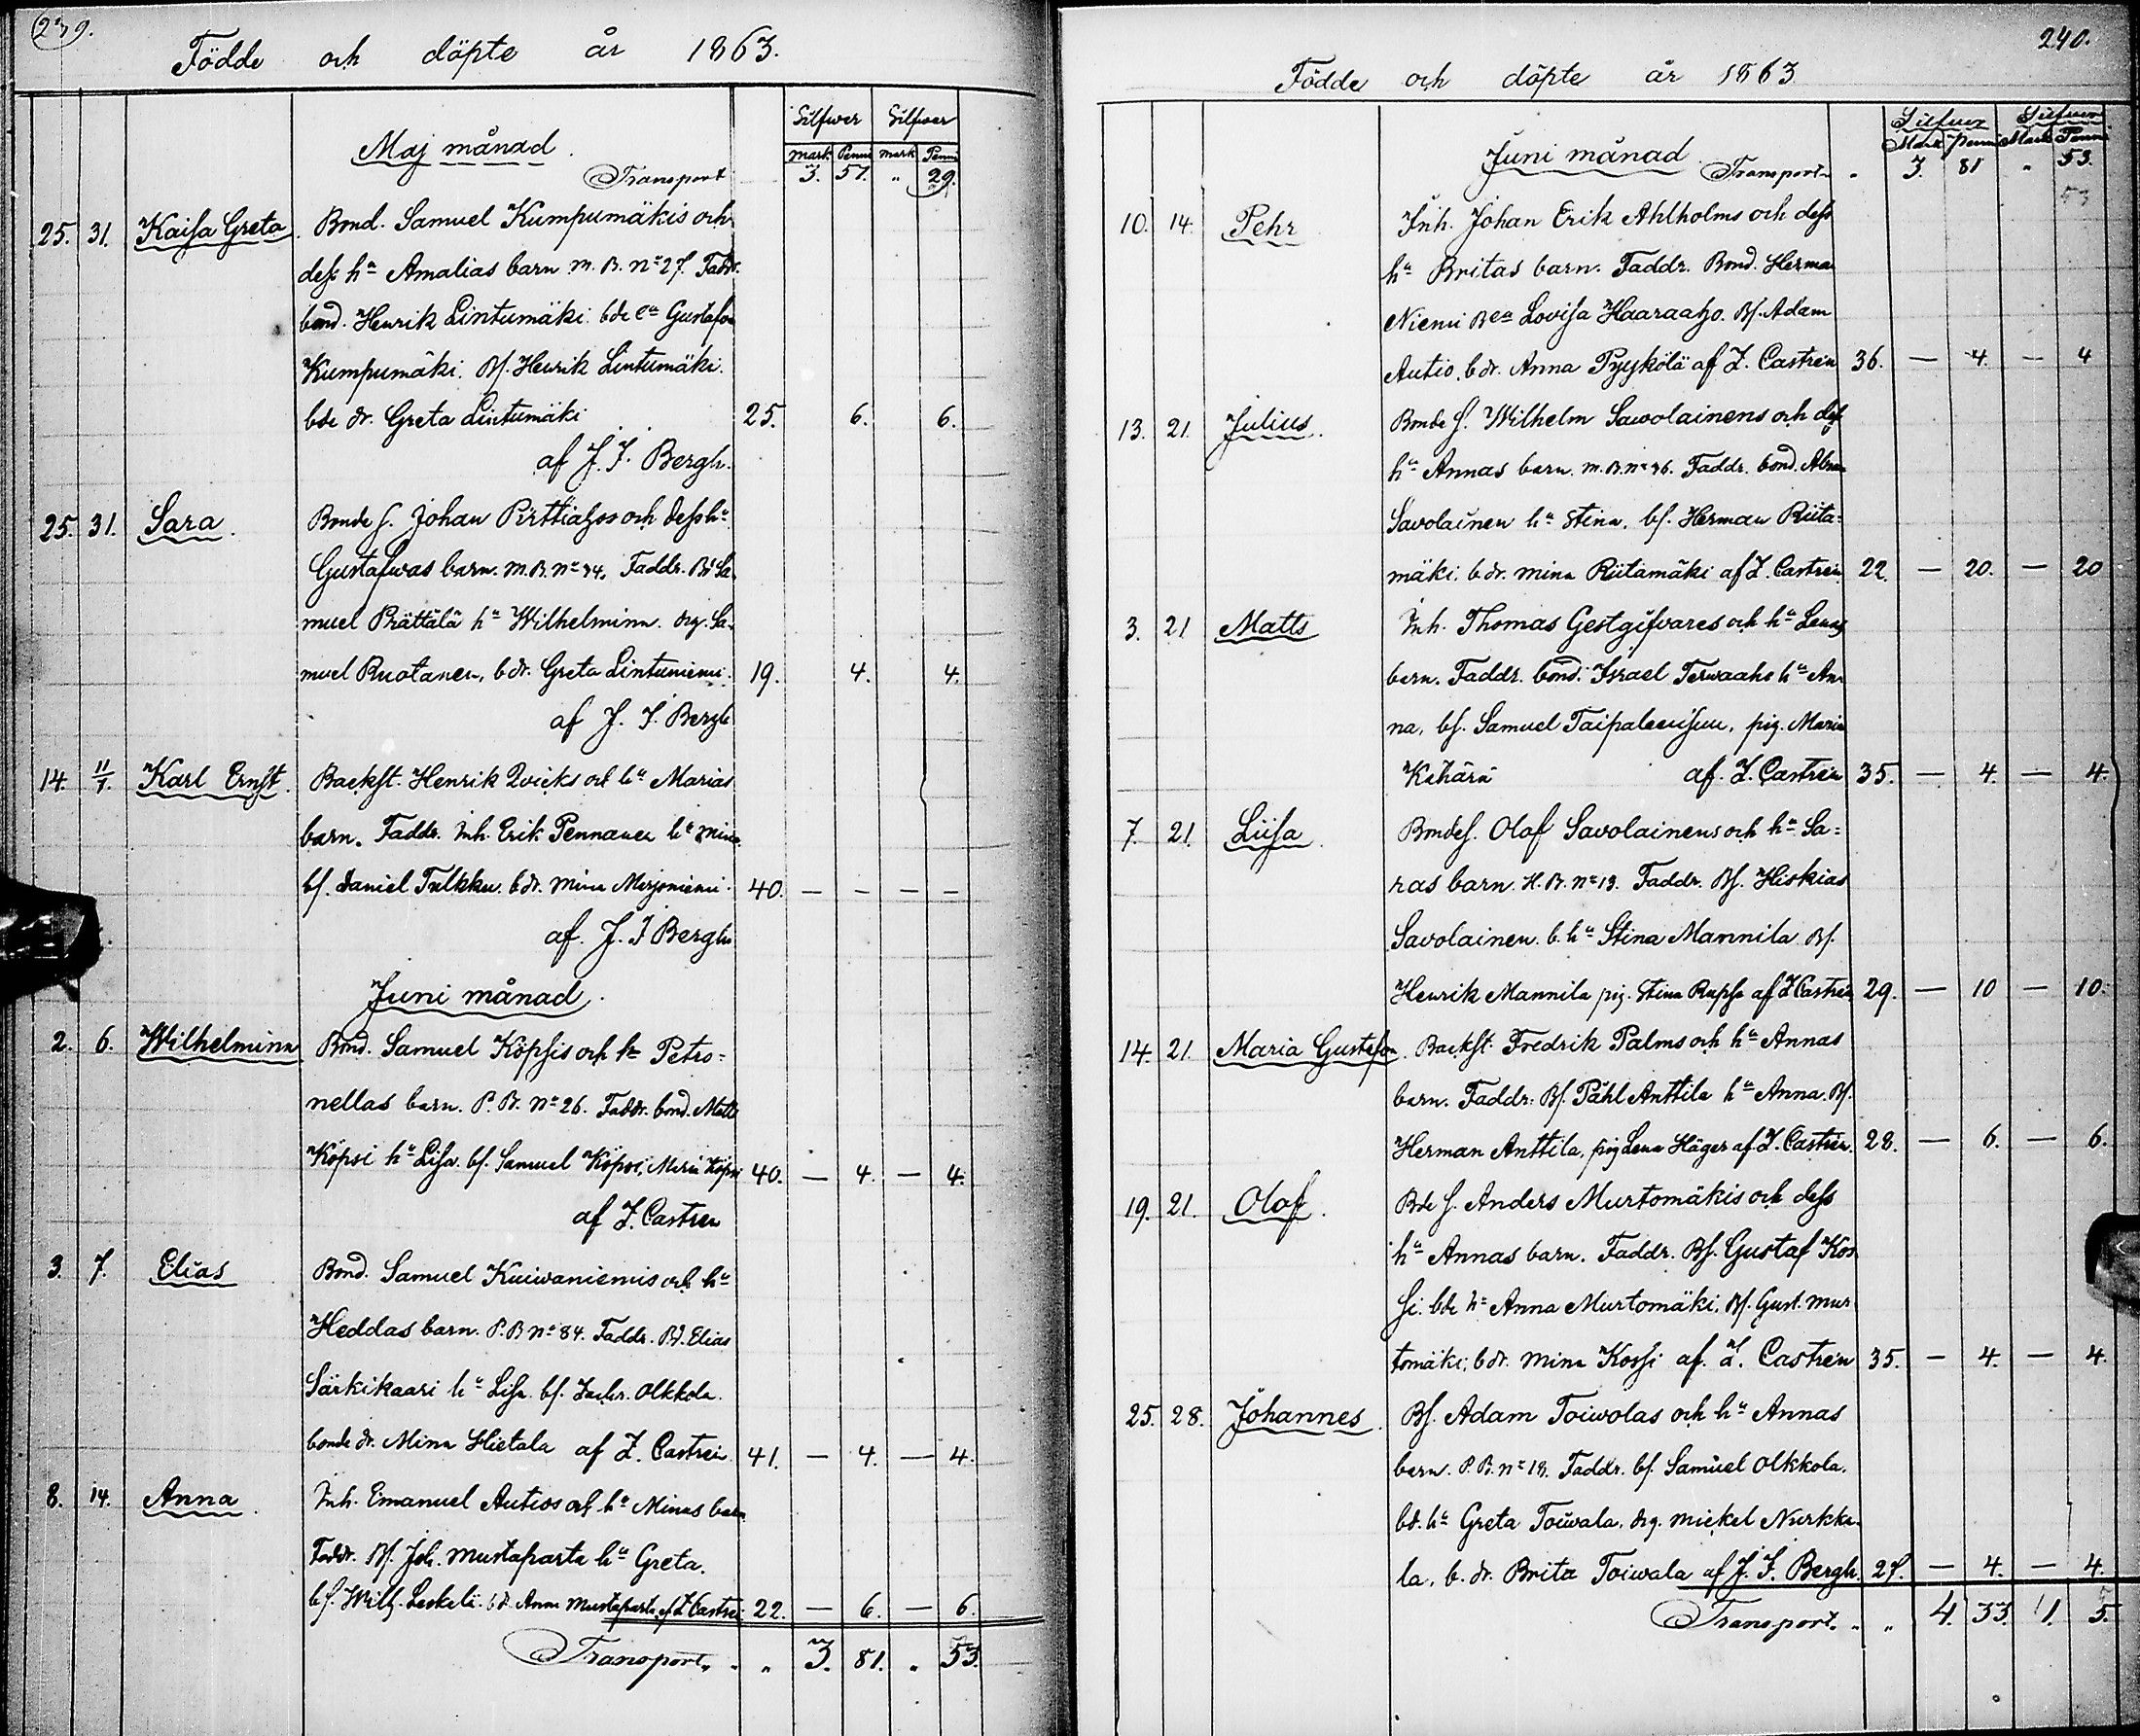 239.
Födde och döpte år 1863.
Silfwer Silfwer
Maj månad.
mark. Penni mark Penni
Transport 3. 57. " 29.
25. 31. Kaisa Greta. Bond. Samuel Kumpumäkis och
dess hu Amalias barn M. B. No 27. Faddr.
bond. Henrik Lintumäki. bde Gustafva
Kumpumäki. Bs. Henrik Lintumäki.
bde dr. Greta Lintumäki 25. 6. 6.
af J. F. Bergh.
25. 31. Sara. Bonde s. Johan Pirttiahos och dess hu
Gustafwas barn. M. B. No 34. Faddr. Bd Sa-
muel Prättälä hu Wilhelmina. drg. Sa-
muel Ruotanen, b dr. Greta Lintuniemi. 19. 4. 4.
af J. F. Bergh
14. 11/7. Karl Ernst. Backst. Henrik Qvicks och hu Marias
barn. Faddr. Inh. Erik Pennanen hu Mina
bs. Daniel Tulkku. b dr. Mina Merjoniemi. 40. — — — —
af. J. F Bergh
Juni månad.
2. 6. Wilhelmina Bond. Samuel Köpsis och hu Petro=
nellas barn. P. B. No 26. Faddr. bond. Matts
Köpsi hu Lisa. bs. Samuel Köpsi, Maria Köpsi 40. — 4. — 4.
af Z. Castren
3. 7. Elias Bond. Samuel Kuiwaniemis och hu
Heddas barn. P. B No 84. Faddr. Bd. Elias
Särkikaari hu Lisa. bs. Zachr. Olkkola.
bonde dr. Mina Hietala af Z. Castrén 41. — 4. — 4.
8. 14. Anna. Inh. Emanuel Autios och hu Minas barn
Faddr. Bs. Joh. Mustaparta hu Greta.
bs. Wilh. Leskelä. b d. Anna Mustaparta af Z Castrén 22. — 6. — 6.
Transport. " 3. 81. " 53.
240.
Födde och döpte år 1863
Silfwer Silfwer
Mark Penni Mark Penni
Juni månad Transport " 3. 81 " 53.
53
10. 14. Pehr Inh. Johan Erik Ahlholms och dess
hu Britas barn. Faddr. Bond. Herman
Niemi Lovisa Haaraaho. Bs. Adam
Autio. b dr. Anna Pyykölä af Z. Castrén 36. — 4. — 4
13. 21. Julius. Bonde s. Wilhelm Sawolainens och dess
hu Annas barn. M. B. No 36. Faddr. bond. Abram
Savolainen hu Stina. bs. Herman Riita=
mäki. b dr. Mina Riitamäki af Z. Castrén 22. — 20. — 20
3. 21 Matts Inh. Thomas Gestgifvares och hu Lenas
barn. Faddr. bond. Israel Terwaaho hu An-
na, bs. Samuel Taipaleensuu, pig. Maria
Kehärä af. Z. Castrén 35. — 4. — 4.
7. 21. Liisa. Bondes. Olof Savolainens och hu Sa=
ras barn. H. B. No 13. Faddr. Bs. Hiskias
Savolainen. b. hu Stina Mannila Bs.
Henrik Mannila pig. Stina Rupsa af Z Castrén 29. — 10 — 10.
14. 21. Maria Gustafva. Backst. Fredrik Palms och hu Annas
barn. Faddr. Bs. Påhl Anttila hu Anna. Bs.
Herman Anttila, pig Lena Häger af Z. Castrén. 28. — 6. — 6.
19. 21. Olof. Bde s. Anders Murtomäkis och dess
hu Annas barn. Faddr. Bs. Gustaf Kos
si. bde hu Anna Murtomäki, Bs. Gust. Mur
tomäki; b dr. Mina Kossi af. Z. Castrén 35. — 4. — 4.
25. 28. Johannes. Bs. Adam Toiwolas och hu Annas
barn. P. B. No 18. Faddr. bs. Samuel Olkkola.
bd. hu Greta Toiwala. drg. Mickel Nurkka-
la. b. dr. Brita Toiwala af J. F. Bergh. 27. — 4. — 4.
Transport. " " 4. 33. 1. 5.